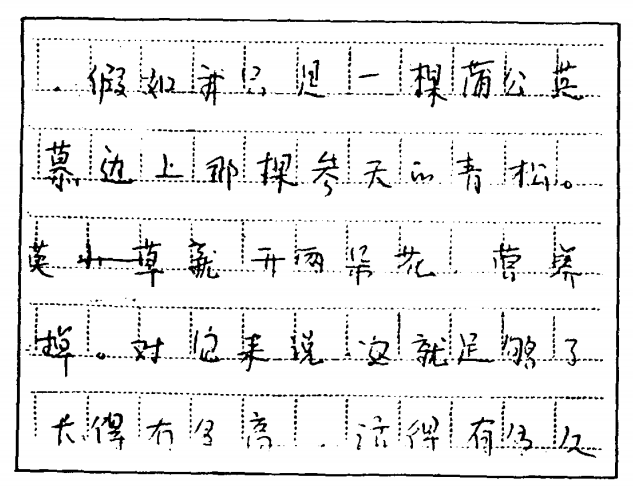 .假如我只是一棵蒲公英
慕边上那棵参天的青松。
英小草就开两朵花.营养
掉。对它来说.这就足够了
长得有多高.活得有多久